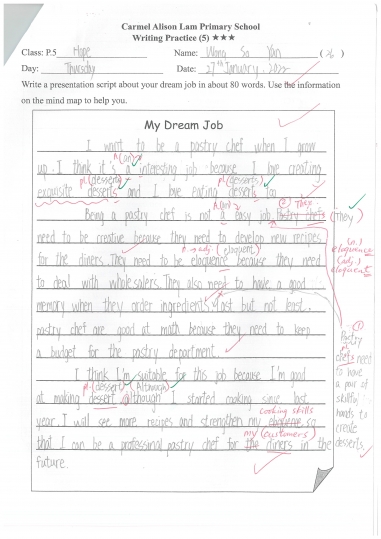 Carmel Alison Lam Primary School
Writing Practice (5) ★★★
Class: P.5 Hope Name: Wong Sa Yan (26)
Day: Thursday Date: 27th January, 2022
Write a presentation script about your dream job in about 80 words. Use the information
on the mind map to help you.
My Dream Job
I want to be a pastry chef when I grow
A (an)
up. I think it's a interesting job because I love creating
pl. (desserts) pl. (desserts)
exquisite desserts and I love eating desserts too.
A (an) ② They
Being a pastry chef is not a easy job. Pastry chefs (They)
need to be creative because they need to develop new recipes
n. → adj. (eloquent)
for the diners. They need to be eloquence because they need
(n.)
eloquence
(adj.)
eloquent
to deal with wholesalers. They also need to have a good
memory when they order ingredients. Last but not least,
pastry chef are good at math because they need to keep
a budget for the pastry department.
① Pastry
chefs need
to have
a pair of
skillful
hands to
create
desserts.
I think I'm suitable for this job because I'm good
pl. (desserts) (Although)
at making dessert. although I started cooking since last
cooking skills
year. I will see more recipes and strengthen my so
my (customers)
that I can be a professinal pastry chef for the diners in the
future.